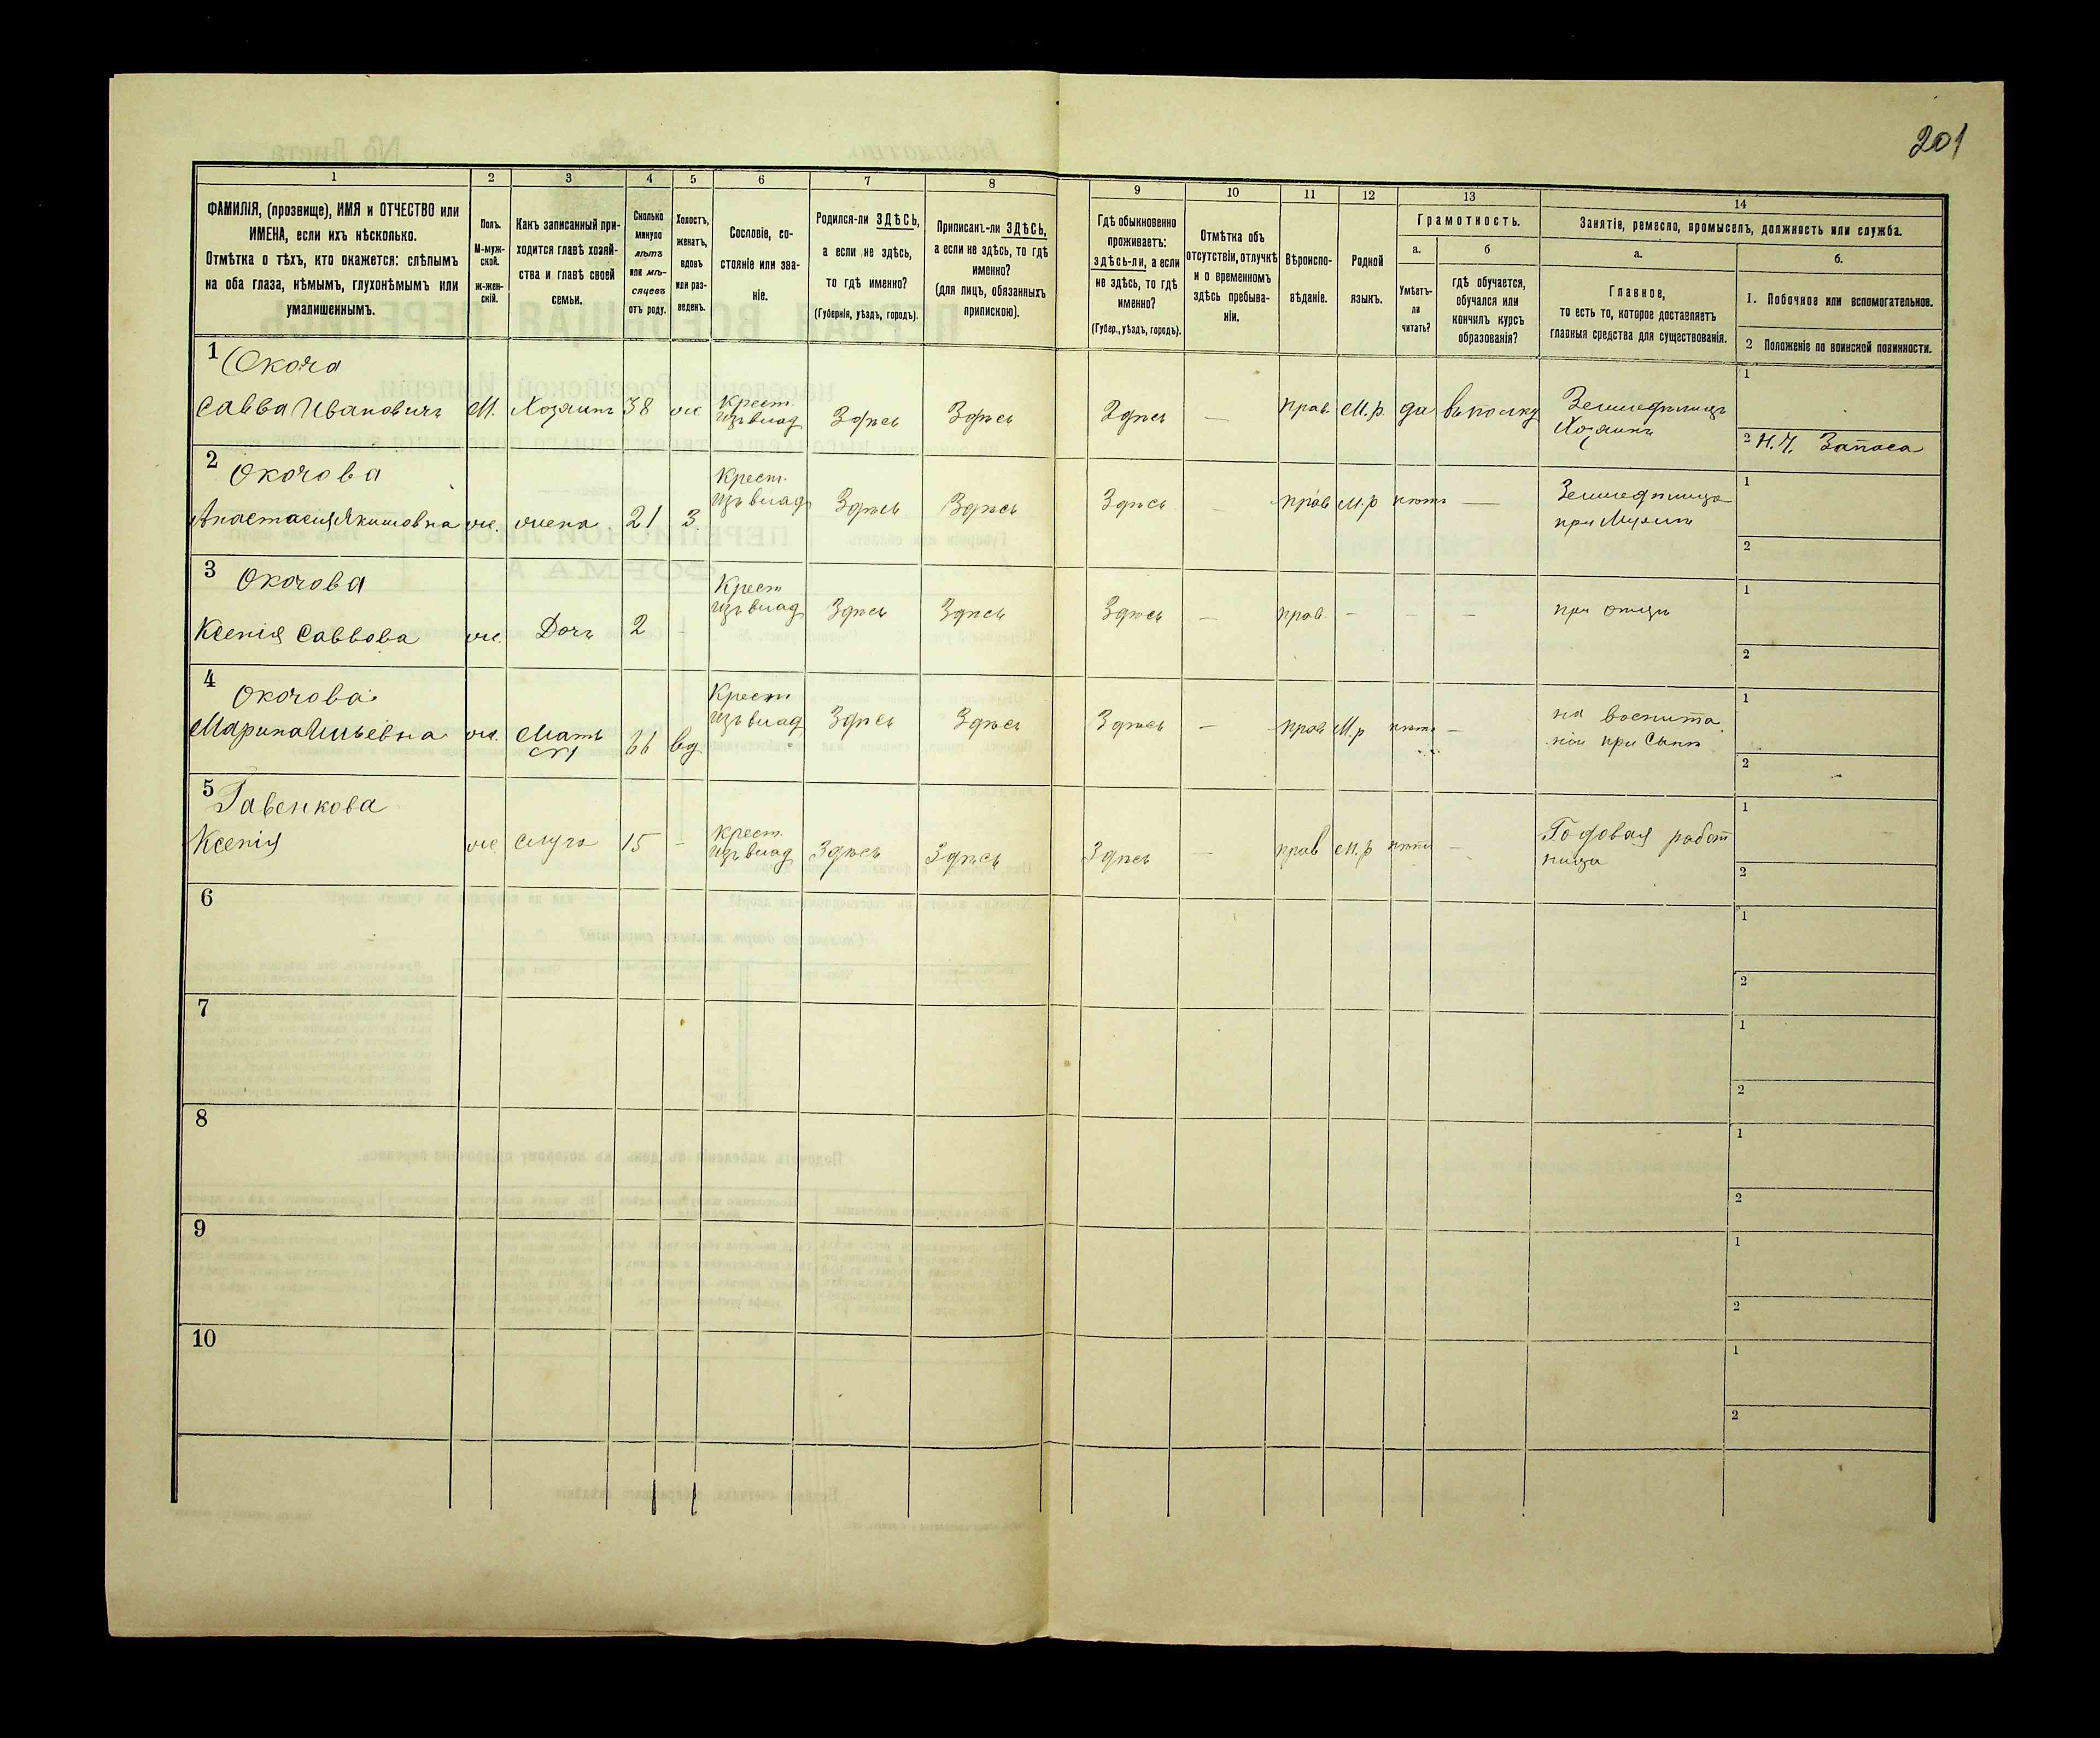 201
1 2 3 4 5 6 7 8 9 10 11 12 13 14
ФАМИЛІЯ, (прозвище), ИМЯ и ОТЧЕСТВО или
ИМЕНА, если ихъ нѣсколько.
Отмѣтка о тѣхъ, кто окажется: слѣпымъ
на оба глаза, нѣмымъ, глухонѣмымъ или
умалишеннымъ.
Полъ.
М-муж-
ской.
ж-жен-
скій.
Какъ записанный при-
ходится главѣ хозяй-
ства и главѣ своей
семьи.
Сколько
минуло
лѣтъ
или мѣ-
сяцевъ
отъ роду.
Холостъ,
женатъ,
вдовъ
или раз-
веденъ.
Сословіе, со-
стояніе или зва-
ніе.
Родился-ли ЗДѢСЬ,
а если не здѣсь,
то гдѣ именно?
(Губернія, уѣздъ, городъ).
Приписанъ-ли ЗДѢСЬ,
а если не здѣсь, то гдѣ
именно?
(для лицъ, обязанныхъ
припискою).
Гдѣ обыкновенно
проживаетъ:
здѣсь-ли, а если
не здѣсь, то гдѣ
именно?
(Губер., уѣздъ, городъ).
Отмѣтка объ
отсутствіи, отлучкѣ
и о временномъ
здѣсь пребыва-
ніи.
Вѣроиспо-
вѣданіе.
Родной
языкъ.
Грамотность.
а.
Умѣетъ-
ли
читать?
б
гдѣ обучается,
обучался или
кончилъ курсъ
образованія?
Занятіе, ремесло, промыселъ, должность или служба.
а.
Главное,
то есть то, которое доставляетъ
главныя средства для существованія.
б.
1. Побочное или вспомогательное.
2 Положеніе по воинской повинности.
1 Окоча
Савва Ивановичъ М. Хозяинъ 38 ж Крест. изъ влад Здѣсь Здѣсь Здѣсь — прав. М.р. да въ полку Земледѣлецъ Хозяинъ
1
2 Н.Ч. Запаса
2 Окочова
Анастасія Якимовна ж. жена 21 З. Крест. изъ влад Здѣсь Здѣсь Здѣсь — прав М.р нѣтъ — Земледѣлица при Мужѣ
1
2
3 Окочова
Ксенія Саввова ж. Дочь 2 - Крест изъ влад Здѣсь Здѣсь Здѣсь — прав. — — — при отцѣ
1
2
4 Окочова
Марина Ильевна ж. Мать 66 вд Крест изъ влад Здѣсь Здѣсь Здѣсь — прав М.р нѣтъ — на воспита ніи при Сынѣ
1
2
5 Гавенкова
Ксенія ж слуга 15 - крест. изъ влад Здѣсь Здѣсь Здѣсь — прав М.р нѣтъ — Годовая работ ница
1
2
6
1
2
7
1
2
8
1
2
9
1
2
10
1
2